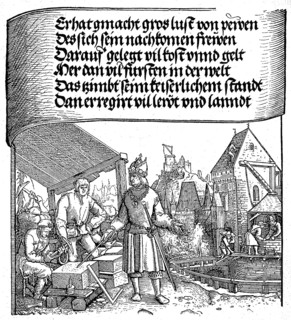 Er hat gmacht gros lust von pewen
Des sich sein nachkomen frewen
Darauf gelegt vil kost vnnd gelt
Mer dan vil fursten in der welt
Das tzimbt seim keiserlichem standt
Dan er regirt vil lewt vnd lanndt